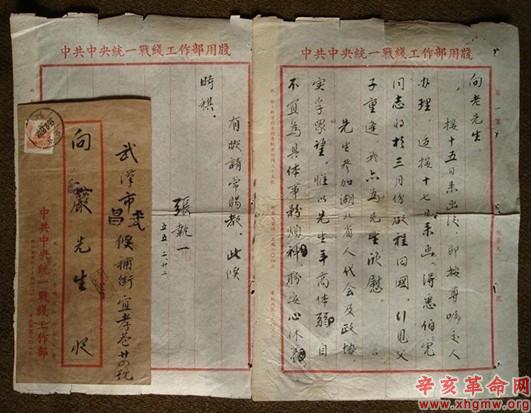 中共中央統一戰綫工作部用牋
向老先生：
接十五日来出後，即按尊嘱交人
办理。近接十七日来函，得悉伯
同志将於三月份啟程回國，引見父
子重逢，我亦為先生欣慰。
先生参加湖北省人代会及政协，
实孚眾望。惟以先生年高体弱，自
不宜為具体事務煩神，盼安心休養。
中共中央統一戰綫工作部用牋
有暇請常賜教。此候
時棋
張執一
五五、二、廿二
武漢市武昌候補街宜孝巷廿四號
向巖先生 收
中共中央統一戰綫工作部
辛亥革命网
www.xhgmw.org